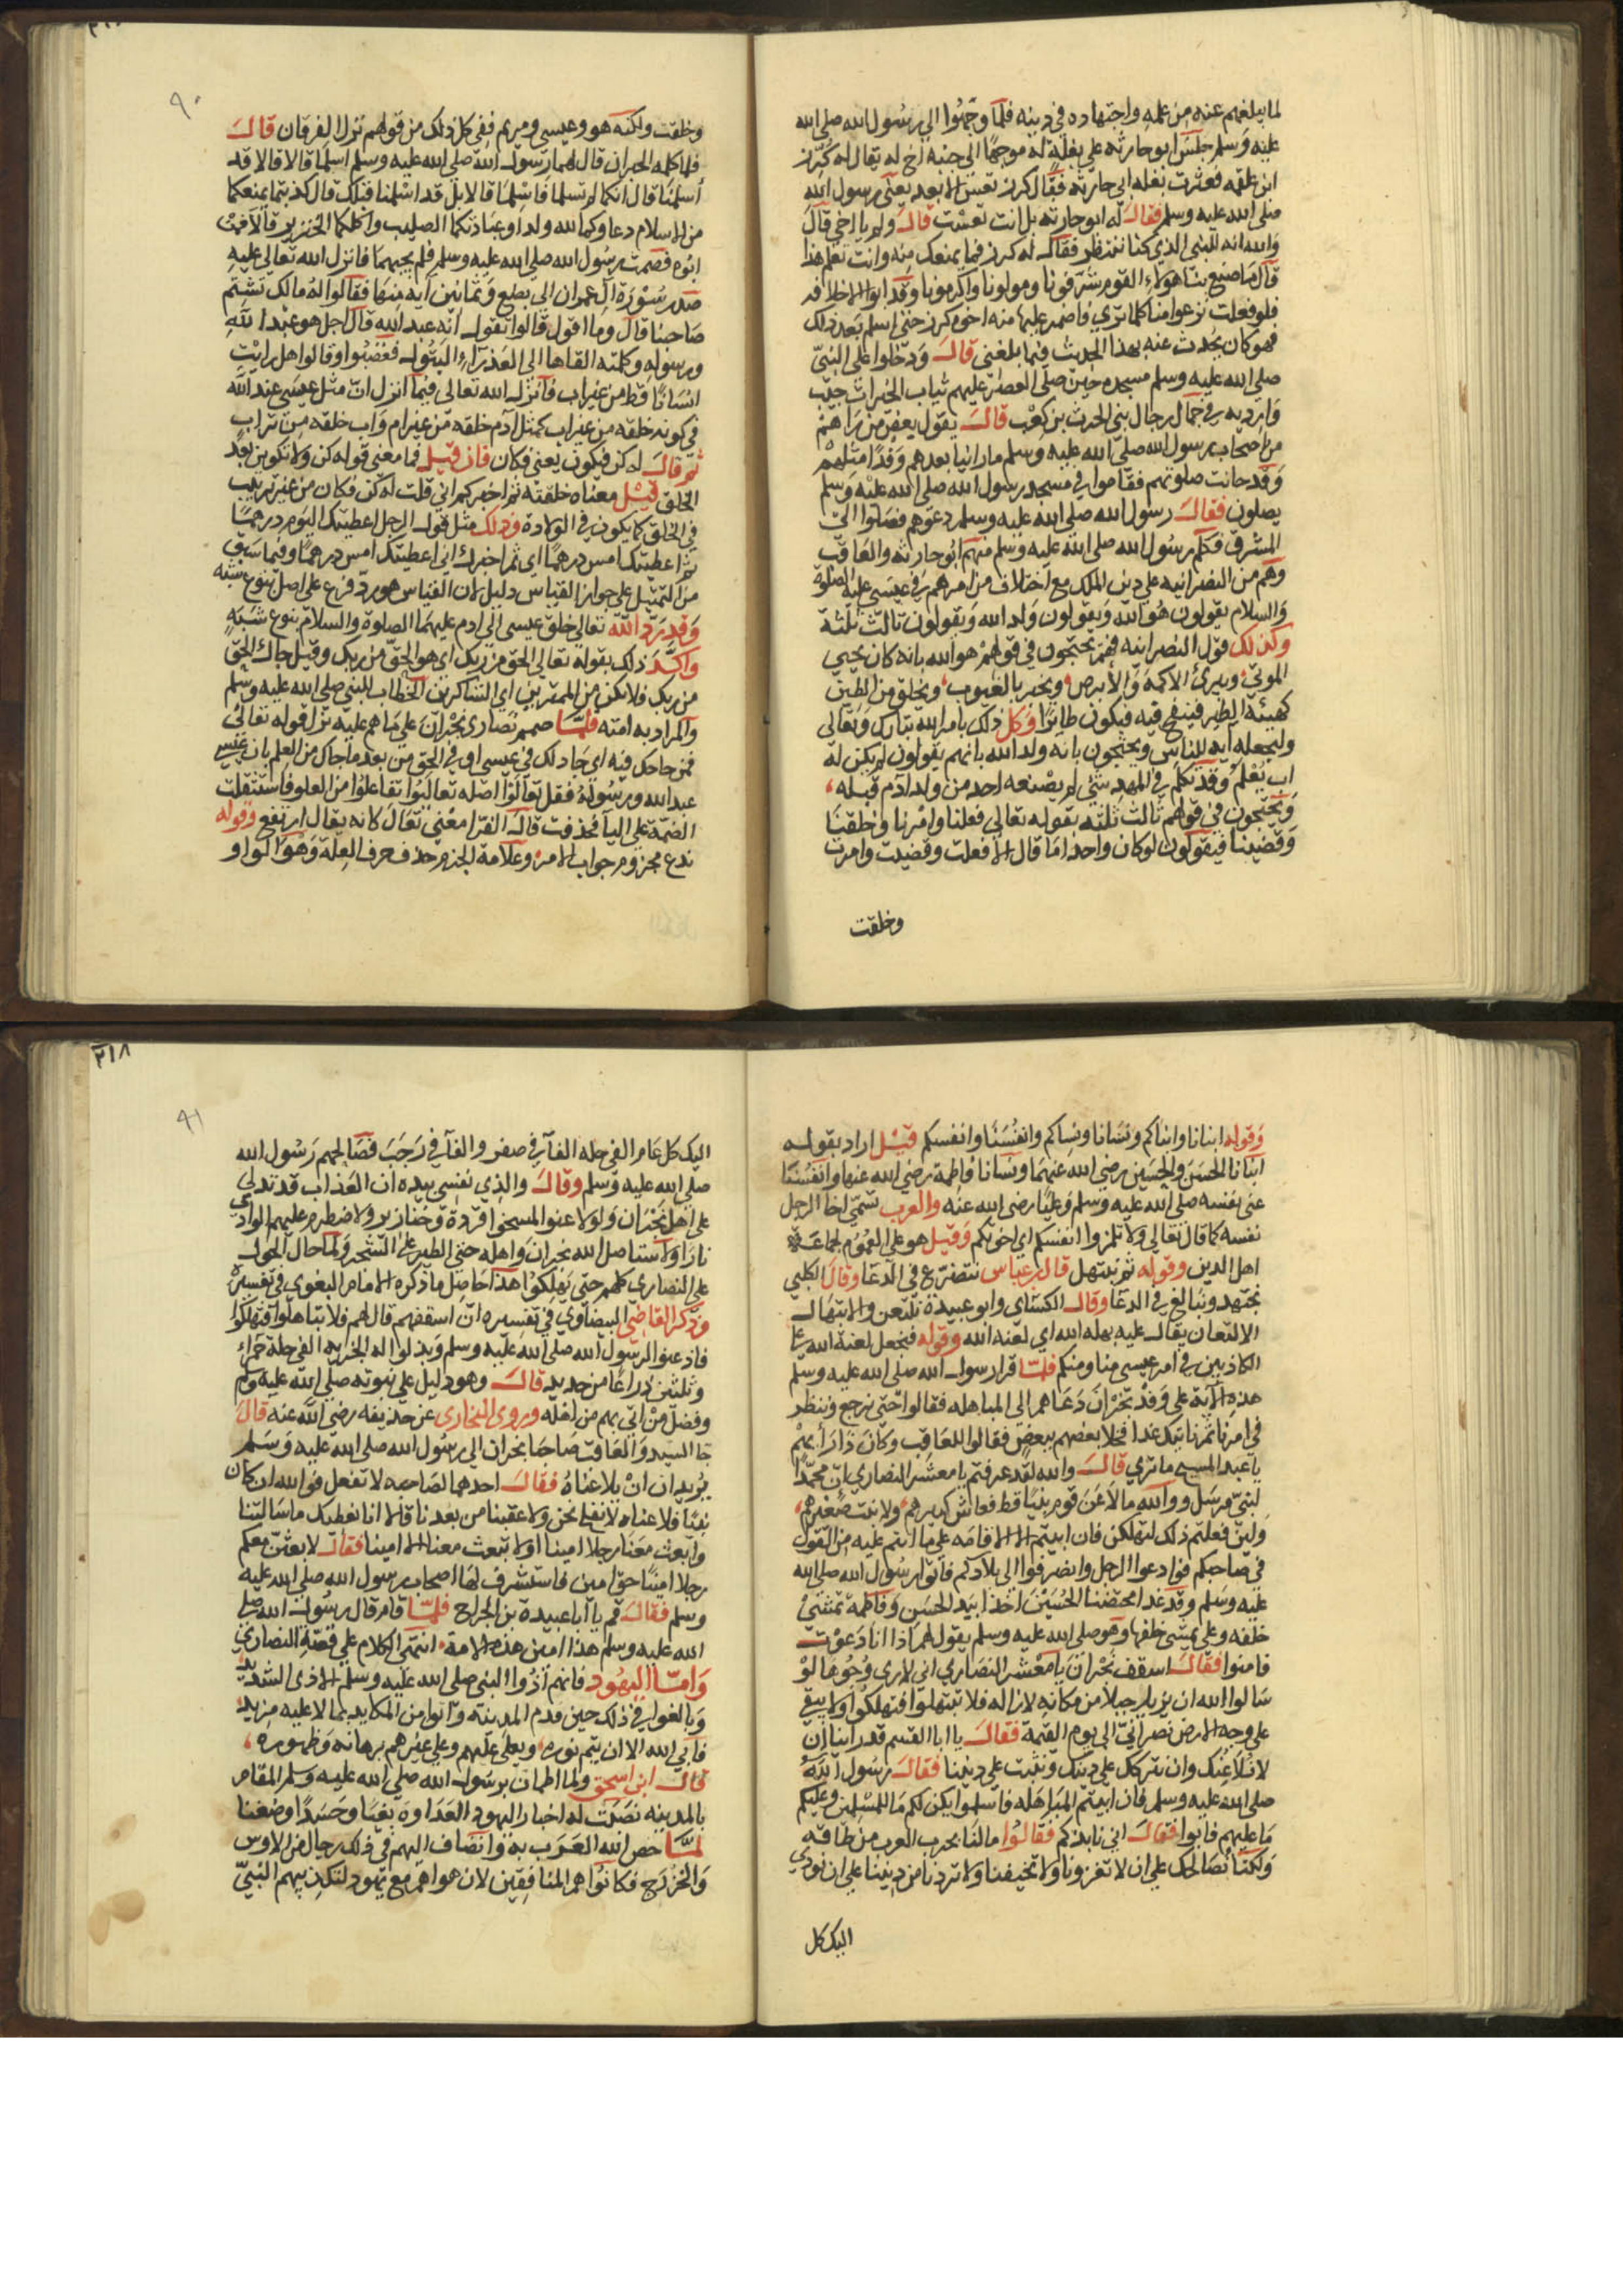 لما يبلغهم عنه من علمه واجتهاده في دينه فلما وجهوا الى رسول الله صلى الله
عليه وسلم جلس ابو حارثه على بغلة له موجها الى جنبه اخ له يقال له كرز
ابن علقمه فعثرت بغله ابى حارثة فقال كرز تعس الابعد يعنى رسول الله
صلى الله عليه وسلم فقال له ابو حارثه بل انت تعست قال ولم يا اخى قال
والله انه للنبى الذي كنا ننتظر فقال له كرز فما يمنعك منه وانت تعلم هذا
قال ما صنع بنا هولاء القوم شرفونا ومولونا واكرمونا وقد ابوا الا خلافه
فلو فعلت نزعوا منا كلما تري فاضمر عليها منه اخوه كرز حتى اسلم بعد ذلك
فهو كان يحدث عنه بهذا الحديث فيما بلغنى قال ودخلوا على النبيّ
صلى الله عليه وسلم مسجده حين صلى العصر عليهم ثياب الحبرات جبب
وارديه في جمال رجال بنى الحرث بن كعب قال يقول بعض من راهم
من اصحاب رسول الله صلى الله عليه وسلم ما راينا بعدهم وفدا مثلهم
وقد حانت صلوتهم فقاموا في مسجد رسول الله صلى الله عليه وسلم
يصلون فقال رسول الله صلى الله عليه وسلم دعوهم فصلوا الى
المشرق فكلم رسول الله صلى الله عليه وسلم منهم ابو حارثه والعاقب
وهم من النصرانيه على دين الملك مع اختلاف من امرهم في عيسى عليه الصلوة
والسلام يقولون هو الله ويقولون ولد الله ويقولون ثالث ثلثة
وكذلك قول النصرانيه فهم يحتجون في قولهم هو الله بانه كان يحيى
الموتى ويبرئ الاكمه والابرص ويخبر بالغيوب ويخلق من الطين
كهيئة الطير فينفخ فيه فيكون طائرا وكل ذلك بامر الله تبارك وتعالى
وليجعله آية للناس ويحتجون بانه ولد الله بانهم يقولون لم يكن له
اب يعلم وقد تكلم في المهد شئ لم يصنعه احد من ولد ادم قبله
ويحتجون في قولهم ثالث ثلثه بقوله تعالى فعلنا وامرنا وخلقنا
وقضينا فيقولون لو كان واحدا ما قال الا فعلت وقضيت وامرت
وخلقت
٩٠
وخلقت ولكنه هو وعيسى ومريم ففي كل ذلك من قولهم نزل الفرقان قال
فلما كلمه الحبران قال لهما رسول الله صلى الله عليه وسلم اسلما قالا قد
أسلمنا قال انكما لم تسلما فاسلما قالا بل قد اسلمنا قبلك قال كذبتما يمنعكما
من الاسلام دعاوكما لله ولدا وعبادتكما الصليب واكلكما الخنزير قالا فمن
ابوه فصمت رسول الله صلى الله عليه وسلم فلم يجبهما فانزل الله تعالى عليه
صدر سورة آل عمران الى بضع وثمانين آيه منها فقالوا له مالك تشتم
صاحبنا قال وما اقول قالوا تقول انه عبد الله قال اجل هو عبد الله
ورسوله وكلمته القاها الى العذراء البتول فغضبوا وقالوا هل رايت
انسانا قط من غير اب فانزل الله تعالى فيما انزل ان مثل عيسى عند الله
في كونه خلقه من غير اب كمثل آدم خلقه من غير ام واب خلقه من تراب
ثم قال له كن فيكون يعنى فكان فان قيل فما معنى قوله كن ولا تكوين بعد
الخلق قيل معناه خلقته ثم اخبركم انى قلت له كن فكان من غير ترتيب
في الخلق كما يكون في الولادة وذلك مثل قول الرجل اعطيتك اليوم درهما
ثم اعطيتك امس درهما اي ثم اخبرك انى اعطيتك امس درهما وفيما سبق
من التمثيل على جواز القياس دليل لان القياس هو رد فرع على اصل بنوع شبه
وقد رد الله تعالى خلق عيسى الى ادم عليهما الصلوة والسلام بنوع شبه
واكد ذلك بقوله تعالى الحق من ربك اى هو الحق من ربك وقيل جاك الحق
من ربك فلا تكن من الممترين اى الشاكرين الخطاب للنبى صلى الله عليه وسلم
والمراد به امته فلما صمم نصارى نجران على ما هم عليه نزل قوله تعالى
فمن حاجك فيه اي جادلك في عيسى او في الحق من بعد ما جاك من العلم بان عيسى
عبد الله ورسوله فقل تعالوا اصله تعاليوا تفاعلوا من العلو فاستثقلت
الضمة على اليا فحذفت قال الفرا معنى تعال كانه يقال ارتفع وقوله
ندع مجزوم جواب الامر وعلامة الجزم حذف حرف العلة وهو الواو
وقوله ابنانا وابناكم ونسانا ونساكم وانفسنا وانفسكم قيل اراد بقوله
ابنانا الحسن والحسين رضى الله عنهما ونسانا فاطمة رضى الله عنها وانفسنا
عنى نفسه صلى الله عليه وسلم وعليا رضى الله عنه والعرب تسمى اخا الرجل
نفسه كما قال تعالى ولا تلمزوا انفسكم اي اخوانكم وقيل هو على العموم لجماعة
اهل الدين وقوله ثم نبتهل قال ابن عباس نتضرع في الدعا وقال الكلبى
نجتهد ونبالغ في الدعا وقال الكسائى وابو عبيدة نلتعن والابتهال
الالتعان يقال عليه بهله الله اى لعنه الله وقوله فنجعل لعنة الله على
الكاذبين في امر عيسى منا ومنكم فلما قرا رسول الله صلى الله عليه وسلم
هذه الاية على وفد نجران دعاهم الى المباهله فقالوا حتى نرجع وننظر
في امرنا ثم ناتيك غدا فخلا بعضهم ببعض فقالوا للعاقب وكان ذا رأيهم
يا عبد المسيح ما ترى قال والله لقد عرفتم يا معشر النصارى ان محمدا
لنبى مرسل ووالله مالاعن قوم نبيا قط فعاش كبيرهم ولا نبت صغيرهم
ولئن فعلتم ذلك لتهلكن فان ابيتم الا الاقامه على ما انتم عليه من القول
في صاحبكم فوادعوا الرجل وانصرفوا الى بلادكم فاتوا رسول الله صلى الله
عليه وسلم وقد غدا محتضنا الحسين اخذا بيد الحسن وفاطمة تمشى
خلفه وعلى يمشى خلفها وهو صلى الله عليه وسلم يقول لهم اذا انا دعوت
فامنوا فقال اسقف نجران يا معشر النصارى انى لارى وجوها لو
سالوا الله ان يزيل جبلا من مكانه لازاله فلا تبتهلوا فتهلكوا ولا يبقى
على وجه الارض نصرانى الى يوم القيمة فقالوا يا ابا القسم قد راينا ان
لا نلاعنك وان نتركك على دينك ونثبت على ديننا فقال رسول الله
صلى الله عليه وسلم فان ابيتم المباهله فاسلموا يكن لكم ما للمسلمين وعليكم
ما عليهم فابوا فقال انى نابذكم فقالوا ما لنا بحرب العرب من طاقه
ولكنا نصالحك على ان لا تغزونا ولا تخيفنا ولا تردنا من ديننا على ان نودي
اليك كل
٣١٨
٩١
اليك كل عام الفى حله الفا في صفر والفا في رجب فصالحهم رسول الله
صلى الله عليه وسلم وقال والذي نفسى بيده ان العذاب قد تدلى
على اهل نجران ولو لاعنوا لمسخوا قردة وخنازير ولاضطرم عليهم الوادي
نارا ولاستاصل الله نجران واهله حتى الطير على الشجر ولما حال الحول
على النصارى كلهم حتى يهلكوا هذا حاصل ما ذكره الامام البغوى في تفسيره
وذكر القاضى البيضاوي في تفسيره ان اسقفهم قال لهم فلا تباهلوا فتهلكوا
فاذعنوا لرسول الله صلى الله عليه وسلم وبذلوا له الجزيه الفى حلة حمراء
وثلثين درعا من حديد قال وهو دليل على نبوته صلى الله عليه وسلم
وفضل من اتى بهم من اهله وروى البخارى عن حذيفه رضى الله عنه قال
جا السيد والعاقب صاحبا نجران الى رسول الله صلى الله عليه وسلم
يريدان ان يلاعناه فقال احدهما لصاحبه لا تفعل فوالله ان كان
نبيا فلاعناه لا نفلح نحن ولا عقبنا من بعدنا قالا انا نعطيك ما سالتنا
وابعث معنا رجلا امينا ولا تبعث معنا الا امينا فقال لابعثن معكم
رجلا امينا حق امين فاستشرف لها اصحاب رسول الله صلى الله عليه
وسلم فقال قم يا ابا عبيدة بن الجراح فلما قام قال رسول الله صلى
الله عليه وسلم هذا امين هذه الامة انتهى الكلام على قصة النصارى
واما اليهود فانهم آذوا النبى صلى الله عليه وسلم الاذى الشديد
وبالغوا في ذلك حين قدم المدينه واتوا من المكايد بما لا عليه مزيد
فابى الله الا ان يتم نوره ويعلى عليهم وعلى غيرهم برهانه وظهوره
قال ابن اسحق ولما اطمان برسول الله صلى الله عليه وسلم المقام
بالمدينه نصبت له احبار اليهود العداوة بغيا وحسدا وضغنا
لما خص الله العرب به وانضاف اليهم في ذلك رجال من الاوس
والخزرج فكانوا هم المنافقين لان هواهم مع يهود لتكذيبهم النبى